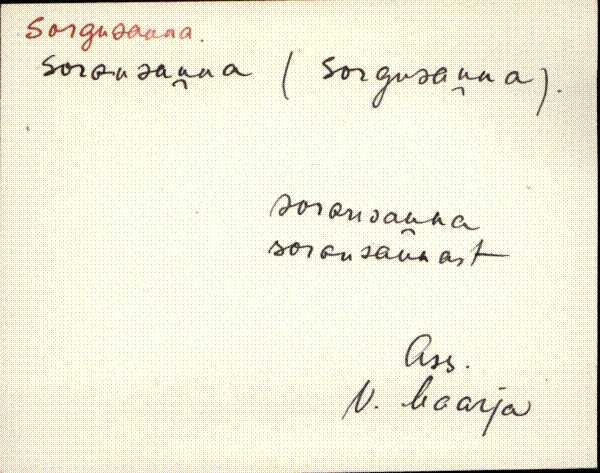 Sorgusauna.
Soransau̯na (Sorgusau̯na).
soransau̯na
soransaunast
Ass.
V. Maarja